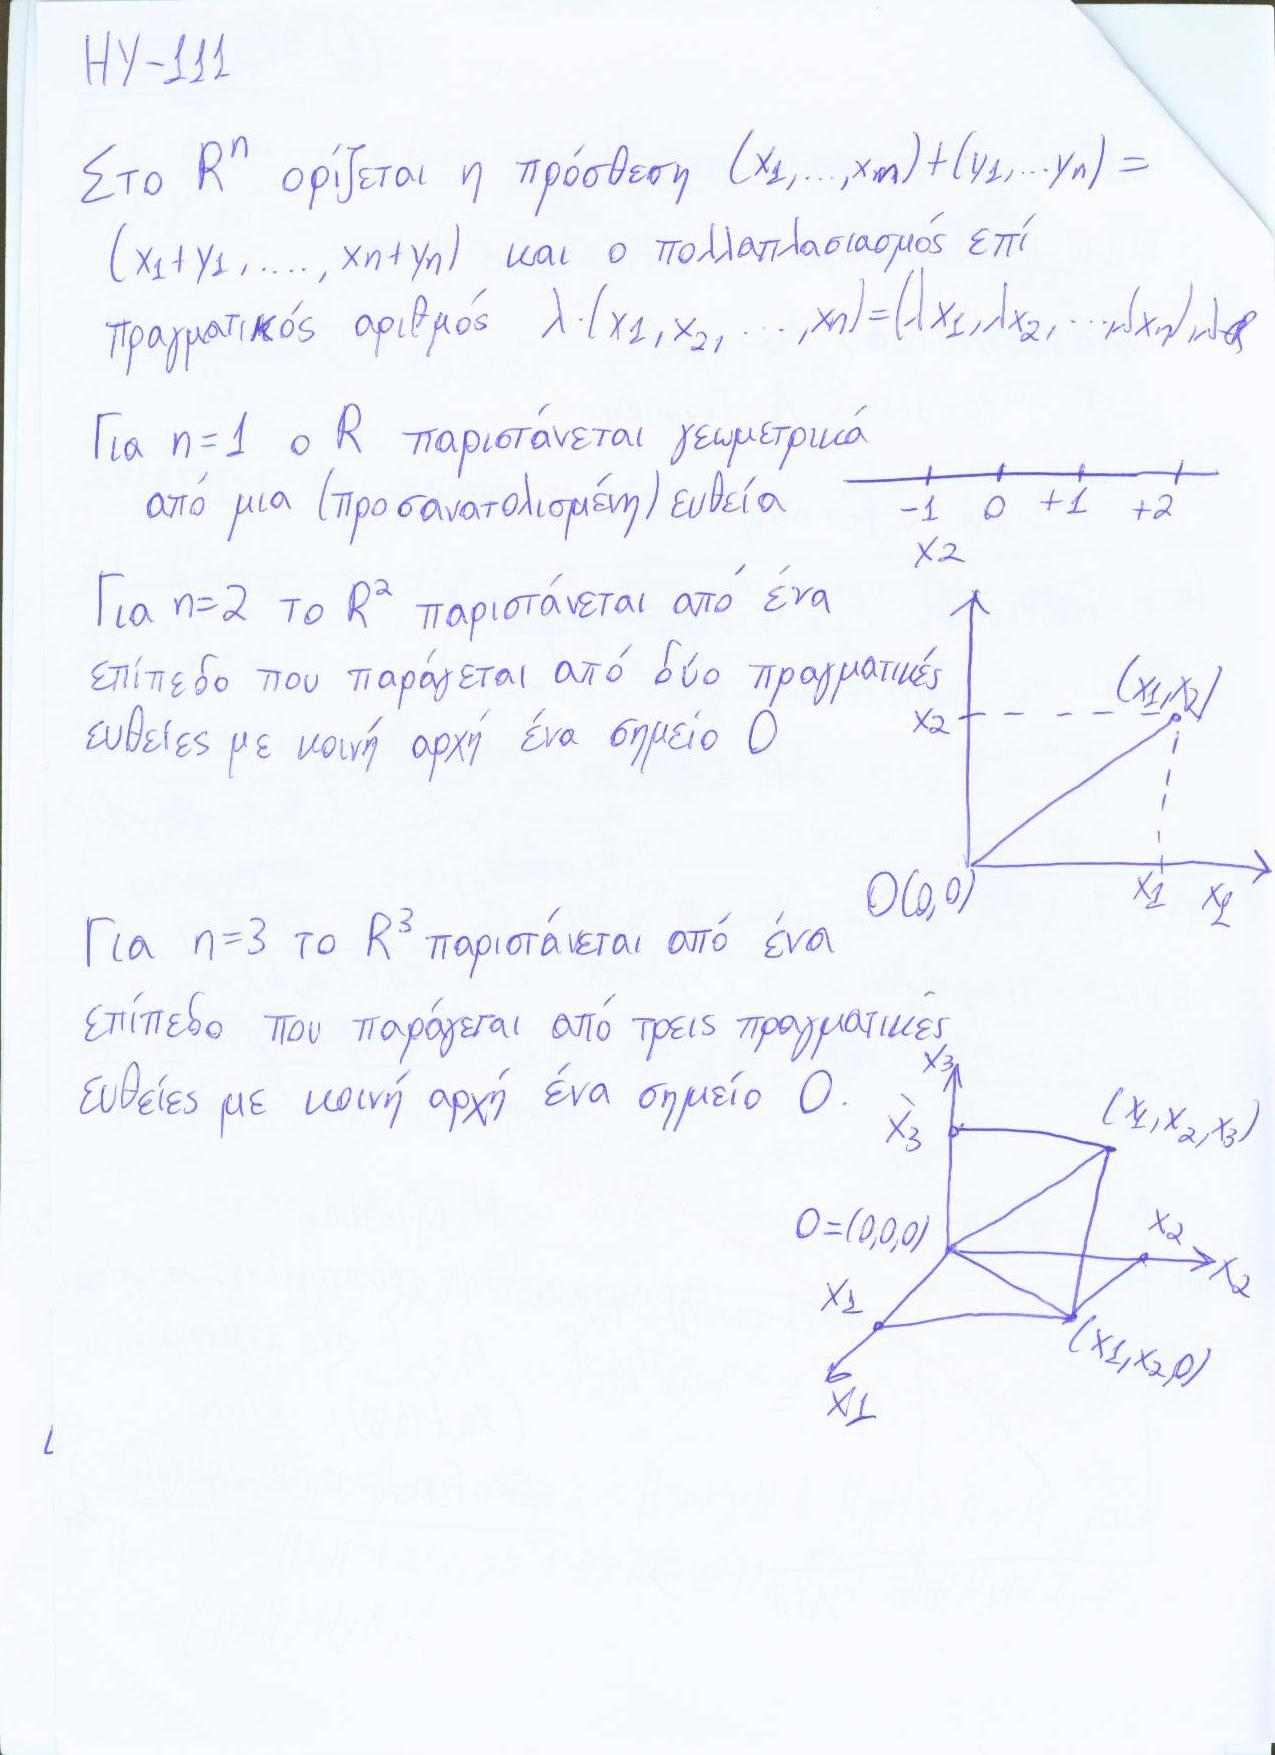 ΗΥ-111
Στο Rⁿ ορίζεται η πρόσθεση (x1,...,xn)+(y1,...yn)=
(x1+y1,....,xn+yn) και ο πολλαπλασιασμός επί
πραγματικός αριθμός λ·(x1,x2,...,xn)=(λx1,λx2,...,λxn),
Για n=1 ο R παριστάνεται γεωμετρικά
από μια (προσανατολισμένη) ευθεία
-1 0 +1 +2
x2
Για n=2 το R² παριστάνεται από ένα
επίπεδο που παράγεται από δύο πραγματικές
(x1,x2)
ευθείες με κοινή αρχή ένα σημείο Ο
x2
O(0,0)
x1 x1
Για n=3 το R³ παριστάνεται από ένα
επίπεδο που παράγεται από τρεις πραγματικές
x3
ευθείες με κοινή αρχή ένα σημείο Ο.
x3
(x1,x2,x3)
O=(0,0,0)
x2
x2
x1
(x1,x2,0)
x1